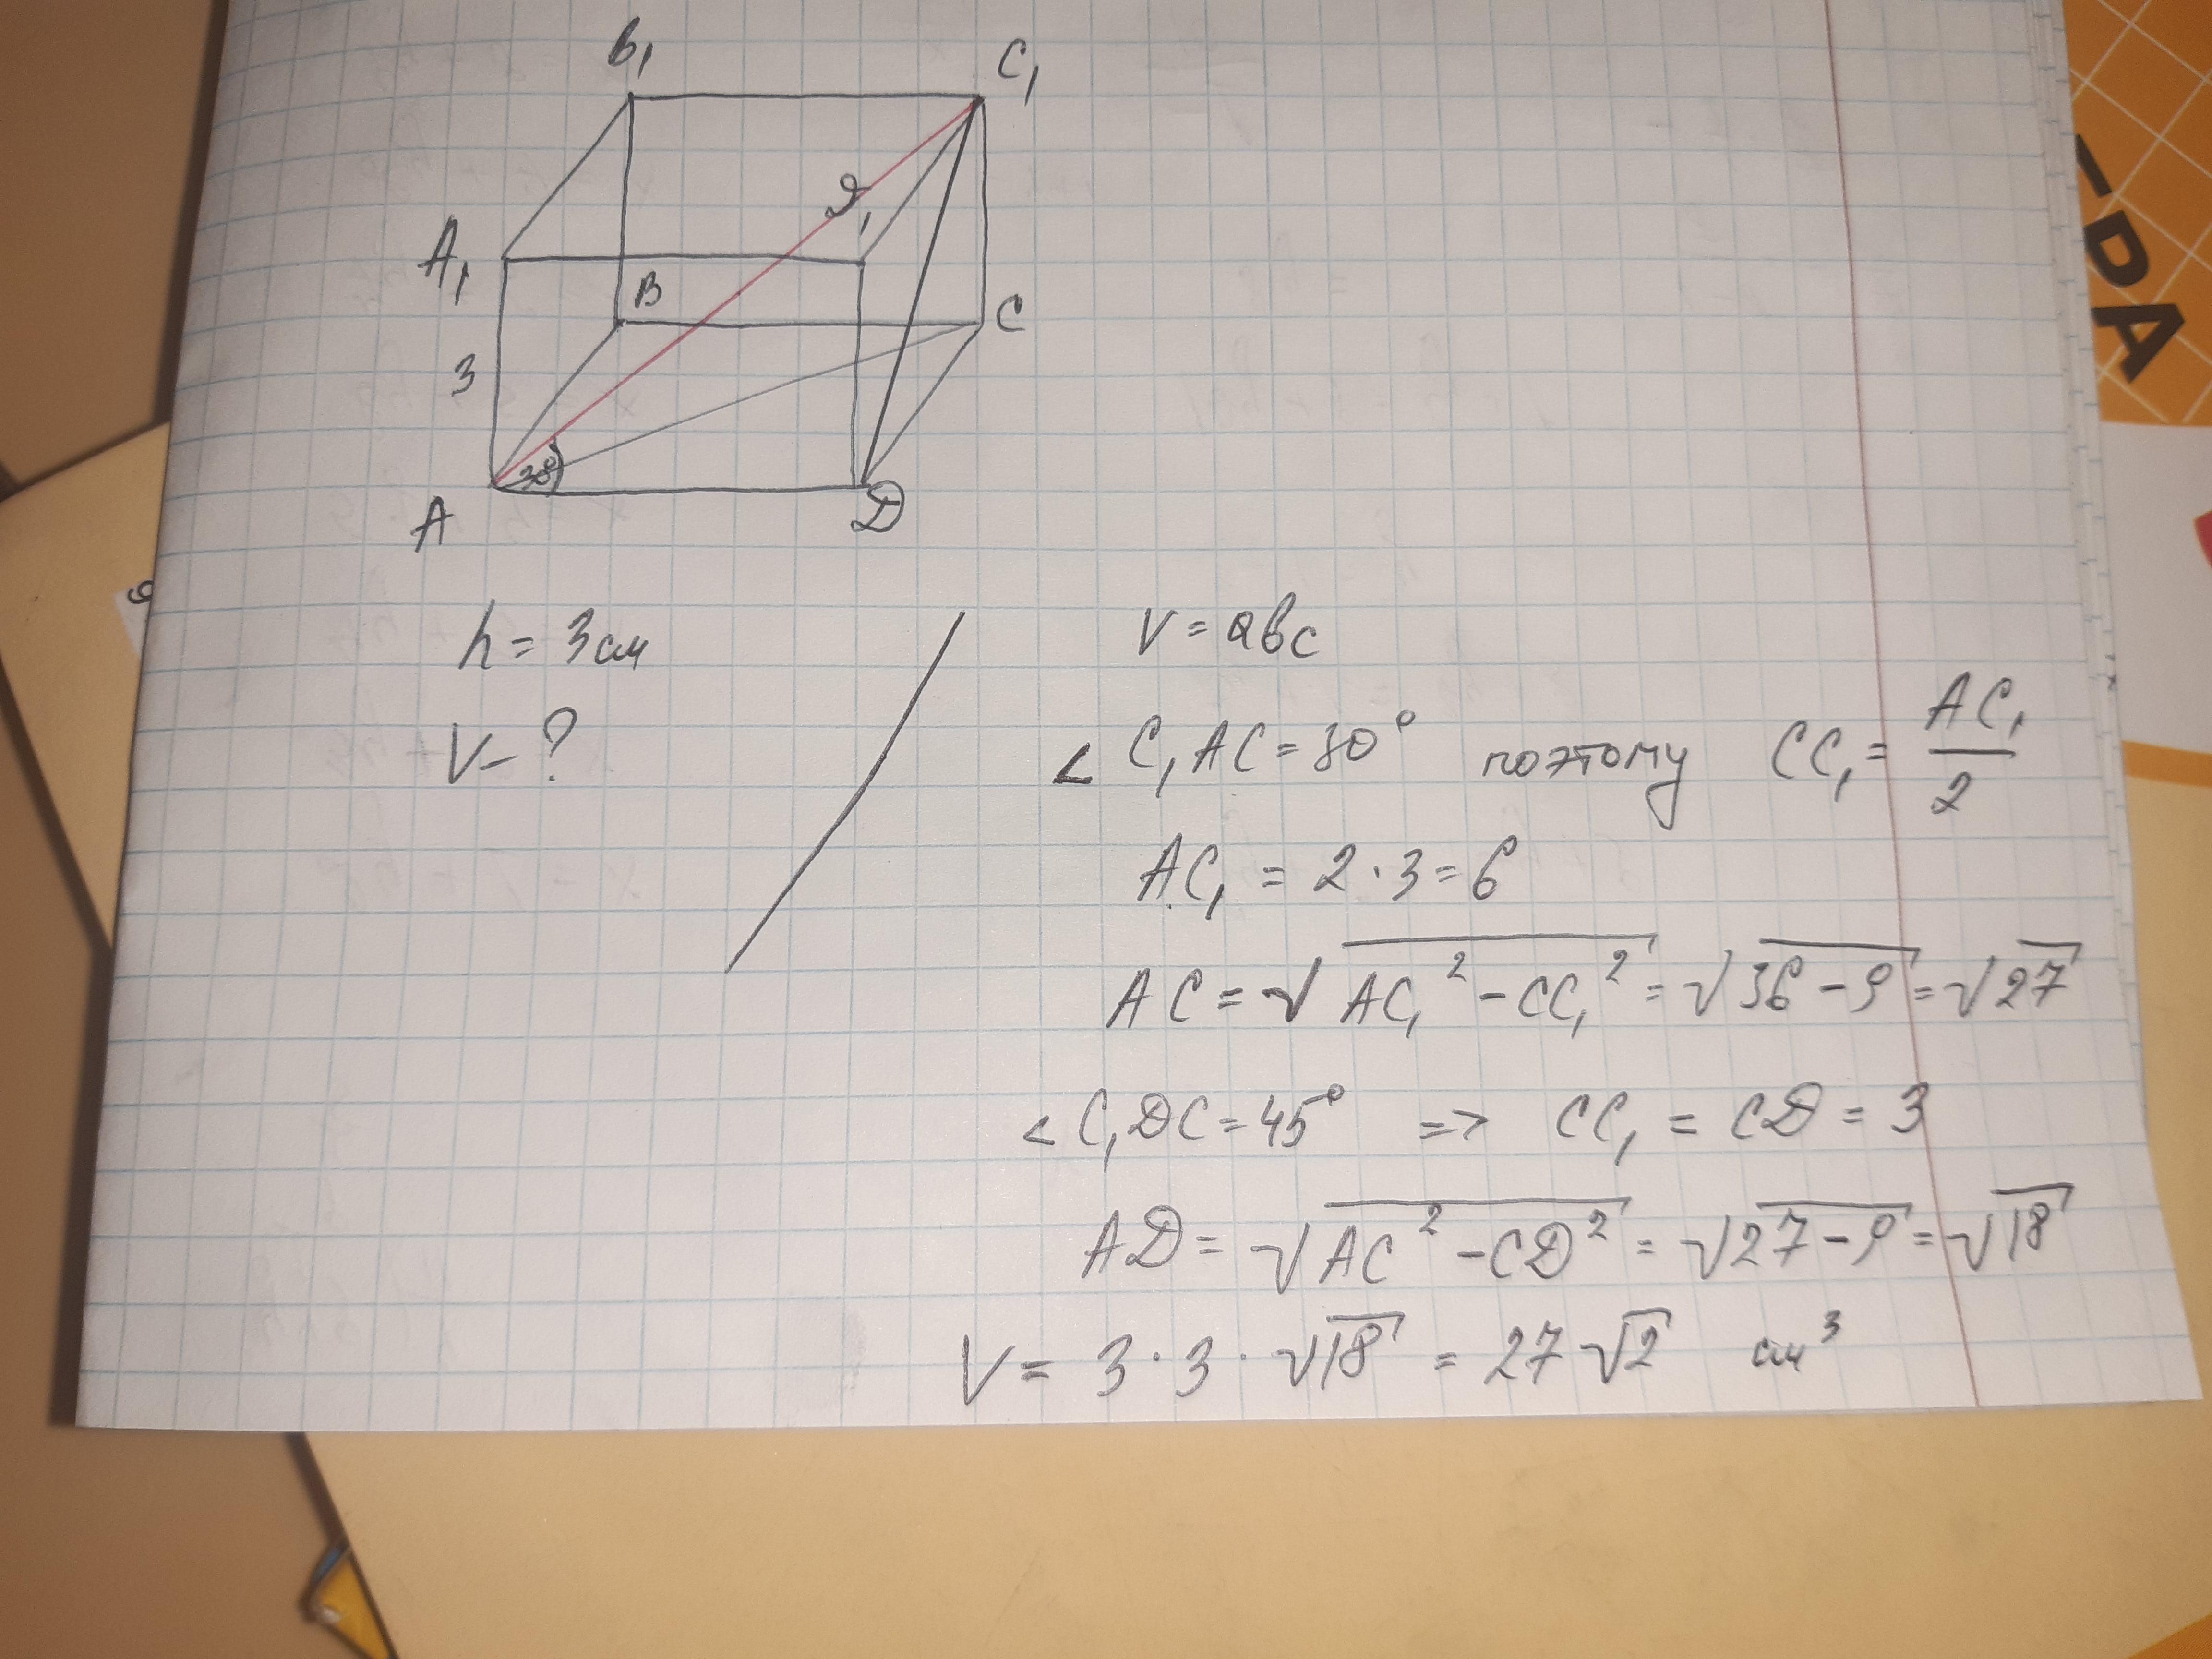 B₁
C₁
D₁
A₁
B
C
3
30°
A
D
h = 3 см
V - ?
V = abc
∠ C₁AC = 30° поэтому CC₁ = AC₁/2
AC₁ = 2 · 3 = 6
AC = √(AC₁² - CC₁²) = √(36 - 9) = √27
∠ C₁DC = 45° => CC₁ = CD = 3
AD = √(AC² - CD²) = √(27 - 9) = √18
V = 3 · 3 · √18 = 27 √2 см³